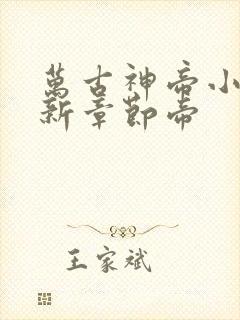 萬古神帝小
新章節帝
王家斌